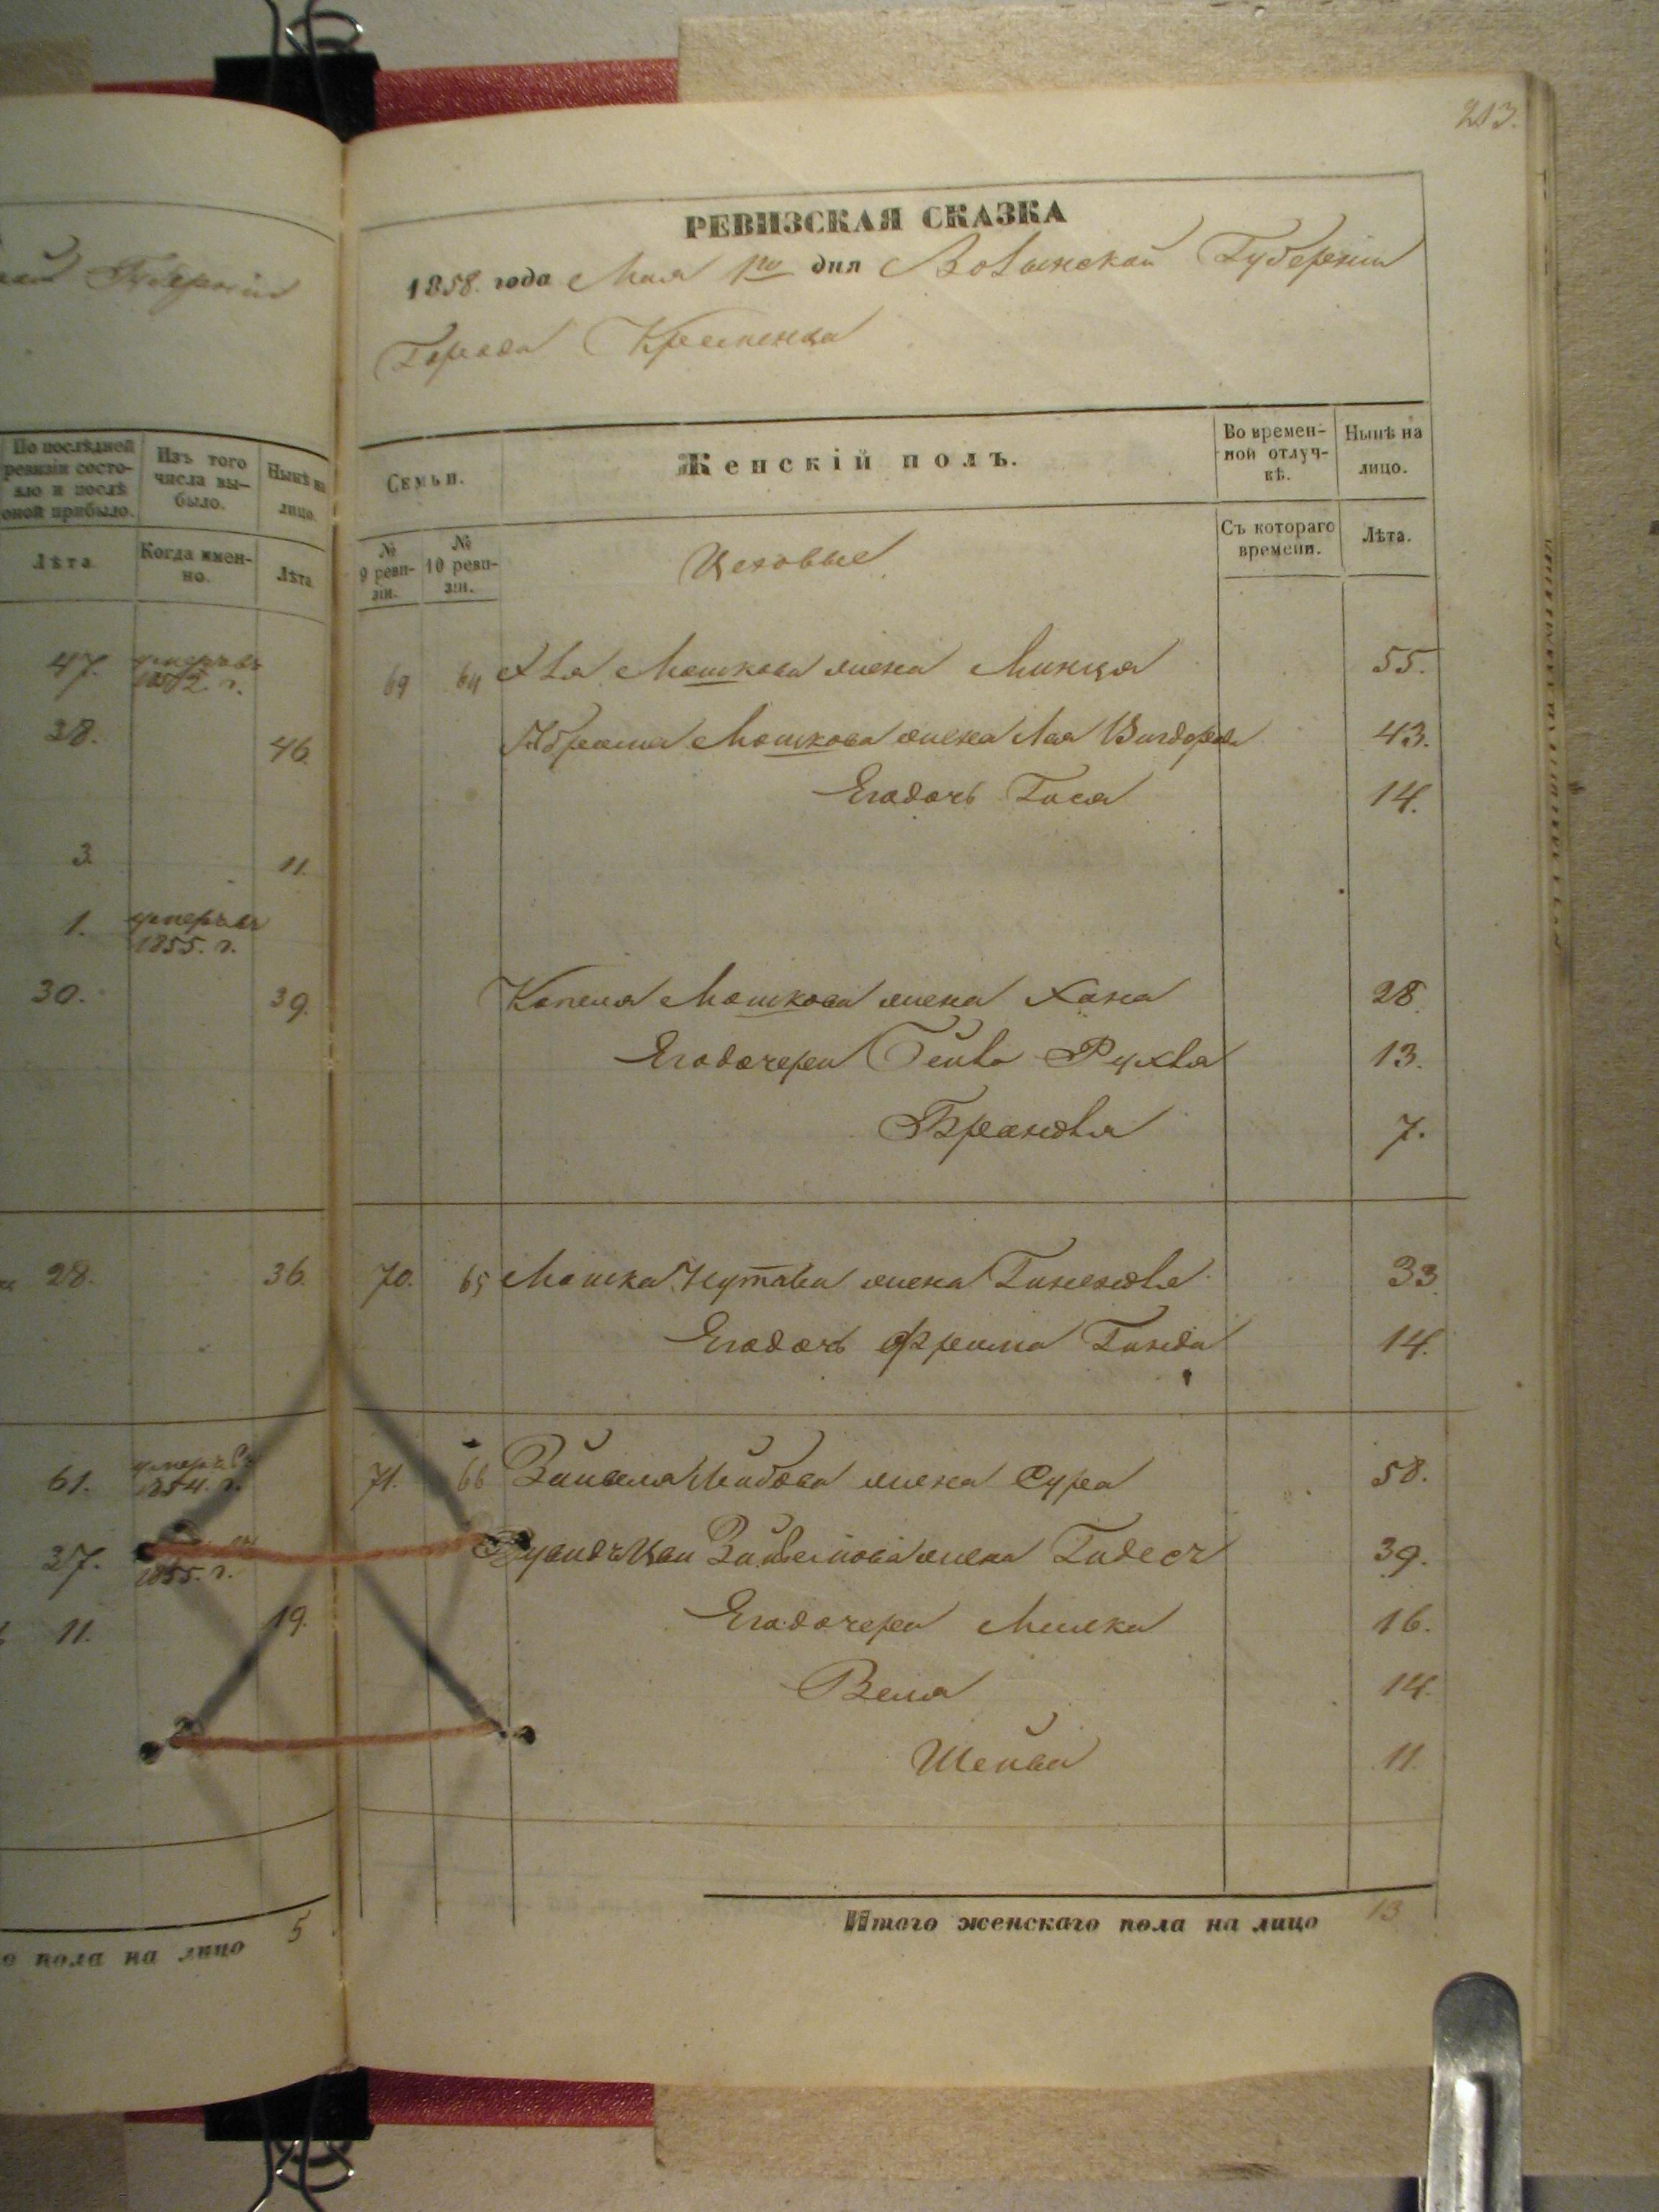 213.
Губерніи
По послѣдней ревизіи состояло и послѣ оной прибыло.
Изъ того числа выбыло.
Нынѣ на лицо.
Лѣта
Когда именно.
Лѣта
47. умеръ въ 1852. г.
38. 46.
3. 11.
1. умеръ въ 1855. г.
30. 39.
28. 36.
61. умеръ въ 1854. г.
27. 1855. г.
11. 19.
о пола на лицо 5
РЕВИЗСКАЯ СКАЗКА
1858. года Мая 1го дня Волынской Губерніи
Города Кременца
Семьи.
Женскій полъ.
Во временной отлучкѣ.
Нынѣ на лицо.
№ 9 ревизіи.
№ 10 ревизіи.
Цеховые
Съ котораго времени.
Лѣта.
69 64 Мошкова жена Минця 55.
Абрама Мошкова жена Лая 43.
Его дочь Гися 14.
Копеля Мошкова жена Хана 28.
Его дочери Рухля 13.
Брандля 7.
70. 65 Мошка жена 33
Его дочь Фрима Гинда 14.
71. 66 жена Сура 58.
жена Гидесъ 39.
Его дочери 16.
Бейля 14.
Шейва 11.
Итого женскаго пола на лицо 13